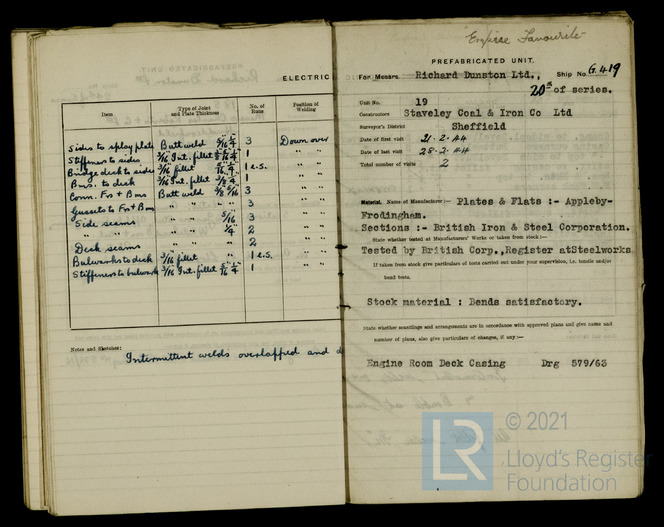 ELECTRIC
Item Type of Joint and Plate Thickness No. of Runs Position of Welding
Sides to splay plate Butt weld 3 Down over
Stiffeners to sides 3/16 Int. fillet 1 " "
Bridge deck to side 3/16 fillet 1 e.s. " "
Bms. to deck 3/16 Int. fillet 1 " "
Conn. Frs + Bms Butt weld 3 " "
Gussets to Frs + Bms " " 3 " "
Side seams " " 5/16 3 " "
" " " " 1/4 2 " "
Deck seams " " 2 " "
Bulwarks to deck 3/16 fillet 1 e.s. " "
Stiffeners to bulwark 3/16 Int. fillet 1 " "
Notes and Sketches:
Intermittent welds overlapped and
"Empire Favourite"
PREFABRICATED UNIT.
For Messrs. Richard Dunston Ltd., Ship No. G.419
20th of series.
Unit No. 19
Constructors Staveley Coal & Iron Co Ltd
Surveyor's District Sheffield
Date of first visit 21.2.44
Date of last visit 28.2.44
Total number of visits 2
Material. Name of Manufacturer:— Plates & Flats :- Appleby-
Frodingham.
Sections :- British Iron & Steel Corporation.
State whether tested at Manufacturers' Works or taken from stock:—
Tested by British Corp.,Register atSteelworks
If taken from stock give particulars of tests carried out under your supervision, i.e. tensile and/or
bend tests.
Stock material : Bends satisfactory.
State whether scantlings and arrangements are in accordance with approved plans and give name and
number of plans, also give particulars of changes, if any:—
Engine Room Deck Casing Drg 579/63
LR © 2021
Lloyd's Register
Foundation